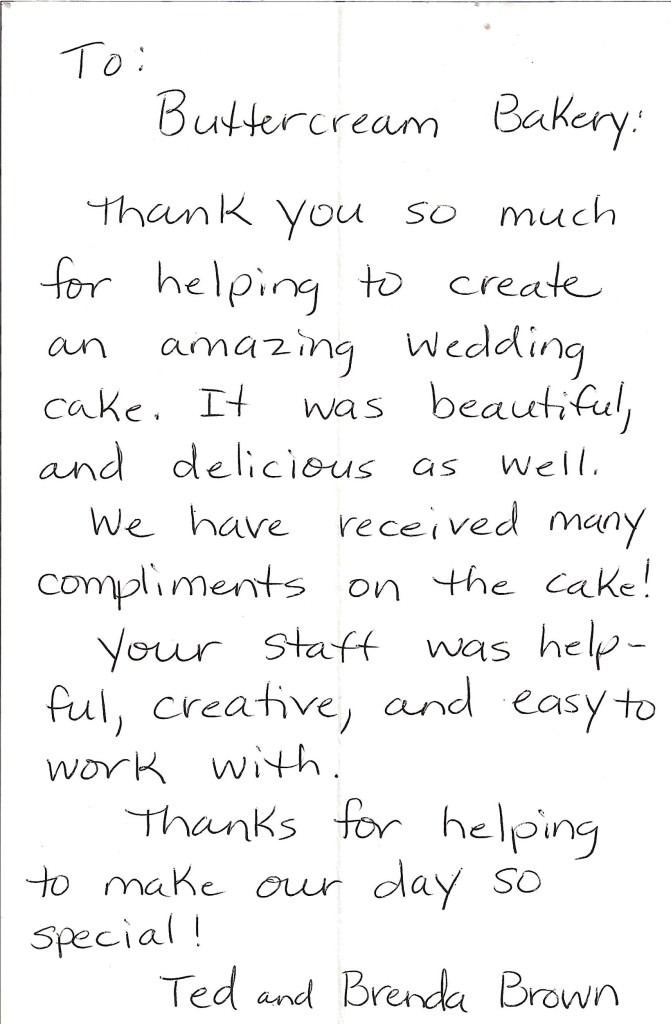 To:
Buttercream Bakery:
Thank you so much
for helping to create
an amazing wedding
cake. It was beautiful,
and delicious as well.
We have received many
compliments on the cake!
Your staff was help-
ful, creative, and easy to
work with.
Thanks for helping
to make our day so
special!
Ted and Brenda Brown